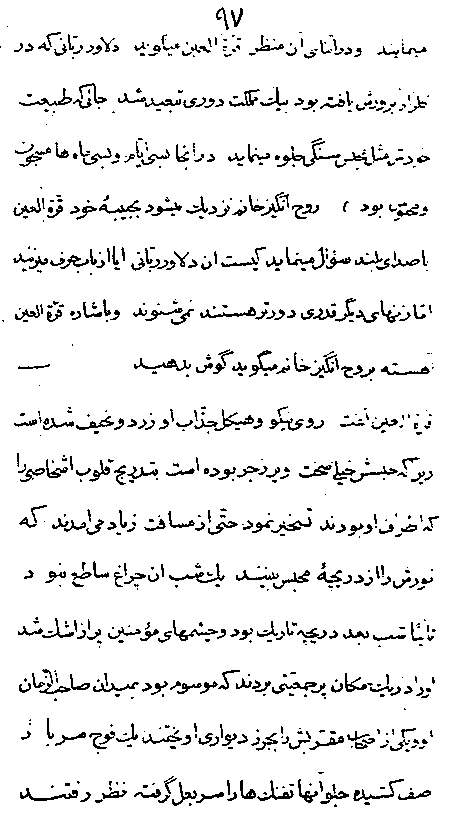 ۹۷
مینمایند و در اثنای آن منظر قرة العین میگوید دلاور ربانی که در
پرورش یافته بود بیک مملکت دوری تبعید شد جائی که طبیعت
خود نیز مثل سنگی جلوه مینماید در انجا بسی ایام و بسی ماه ها مسجون
و بود ) روح انگیز خانم نزدیک میشود بجیبهٔ خود قرة العین
با صدای بلند سئوال مینماید کیست ان دلاور ربانی ایا از باب حرف میزنید
اما زنهای دیگر قدری دورتر هستند نمی شنوند و باشاره قرة العین
آهسته بروح انگیز خانم میگوید گوش بدهید —
قرة العین گفت روی نیکو و هیکل جذاب او زرد و نحیف شده است
زیرا که حبسش خیلی سخت و پر زجر بوده است بتدریج قلوب اشخاصی را
که اطراف او بودند تسخیر نمود حتی از مسافت زیاد می امدند که
نورش را از دریچهٔ مجلس ببینند یک شب ان چراغ ساطع نبود
ثانیا شب بعد دریچه تاریک بود و چشمهای مؤمنین پر از اشک شد
او را در یک مکان پر جمعیتی بردند که موسوم بود بمیدان صاحب الزمان
او و یکی از اصحاب مقربش را بجرز دیواری اویختند یک فوج سرباز
صف کشیده جلو آنها تفنگ ها را سر بغل گرفته